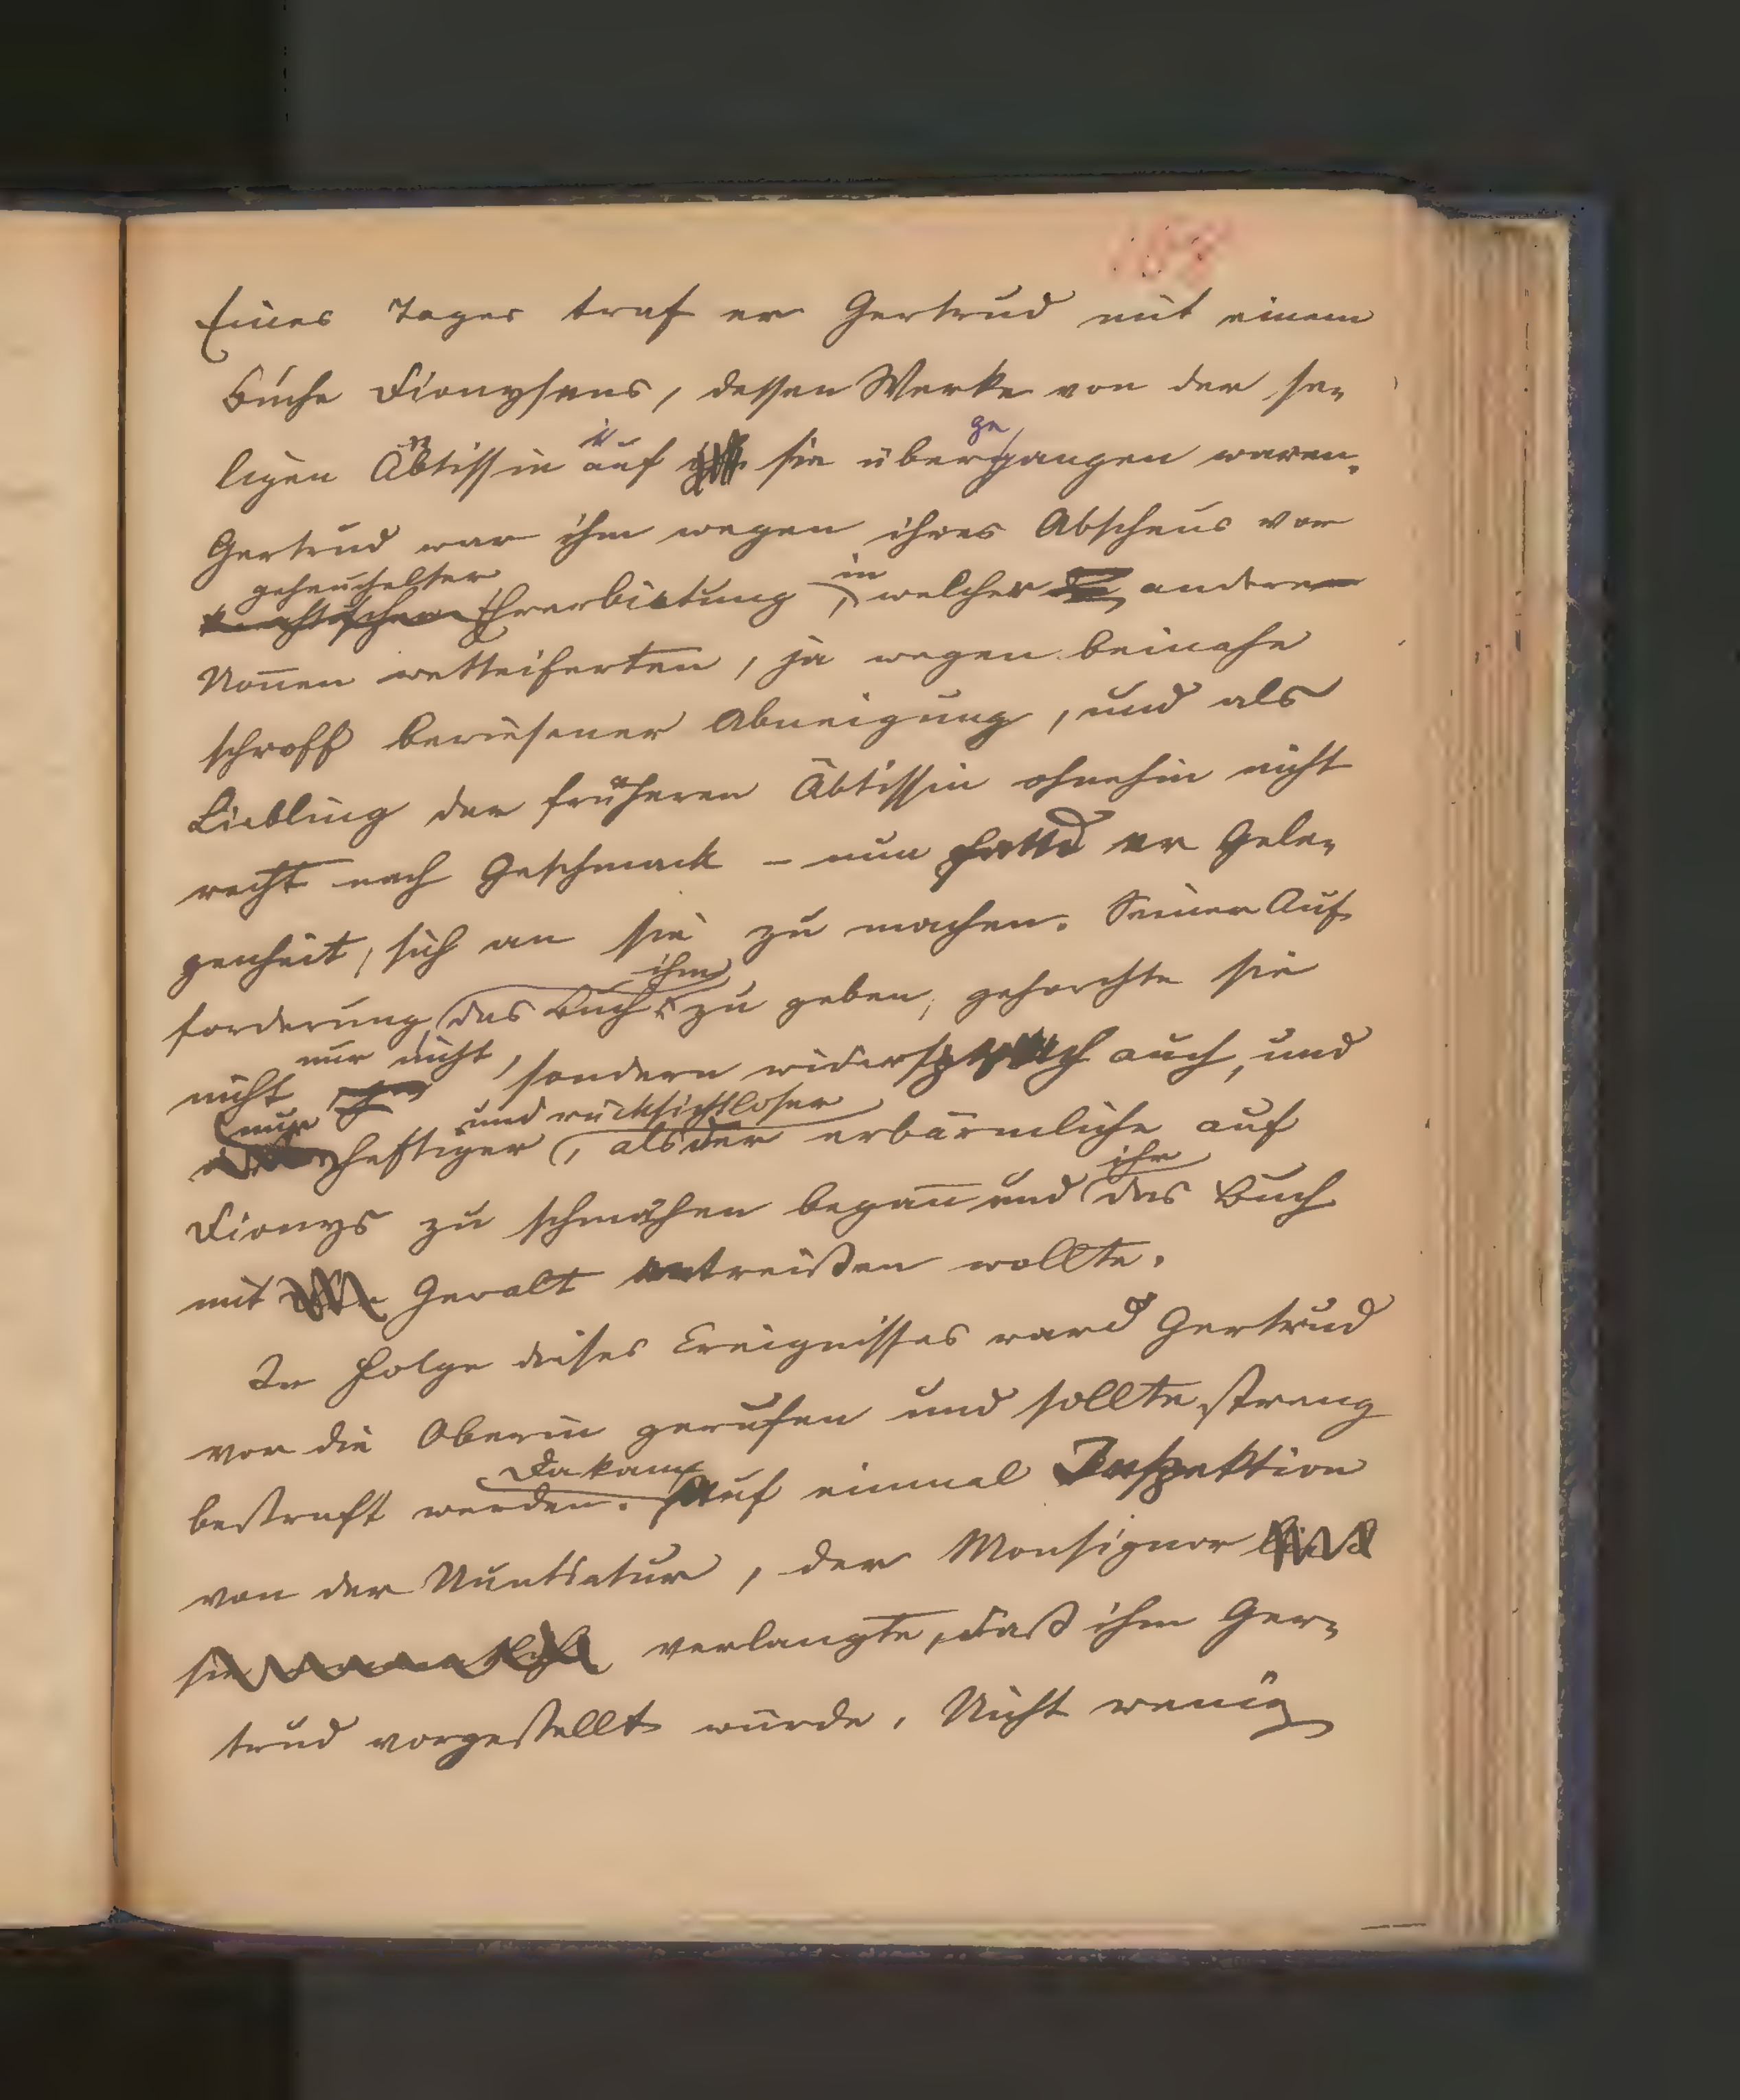 Eines Tages traf er Gertrud mit einem
Buche Dionysens, dessen Werke von der se-
ligen Äbtissin auf sie übergegangen waren.
Gertrud war ihm wegen ihres Abscheus vor
geheuchelter
knechtischer Ehrerbietung, in welcher andere
Nonnen wetteiferten, ja wegen beinahe
schroff bewiesener Abneigung, und als
Liebling der früheren Äbtissin ohnehin nicht
recht nach Geschmack – nun fand er Gele-
genheit, sich an sie zu machen. Seiner Auf-
forderung, das Buch ihm zu geben, gehorchte sie
nicht nur nicht, sondern widersprach auch, und
nur heftiger und rücksichtloser, als der erbärmliche auf
Dionys zu schmähen begann und ihr das Buch
mit Gewalt entreißen wollte.
In Folge dieses Ereignisses ward Gertrud
vor die Oberin gerufen und sollte streng
bestraft werden. Da kam auf einmal Inspektion
von der Nuntiatur, der Monsignor
sie verlangte, daß ihm Ger-
trud vorgestellt würde. Nicht wenig